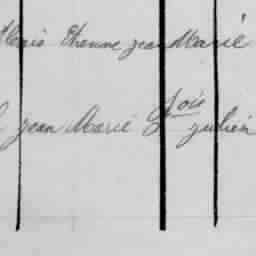 Alexis Etienne jean Marie
jean Marie Lois julien